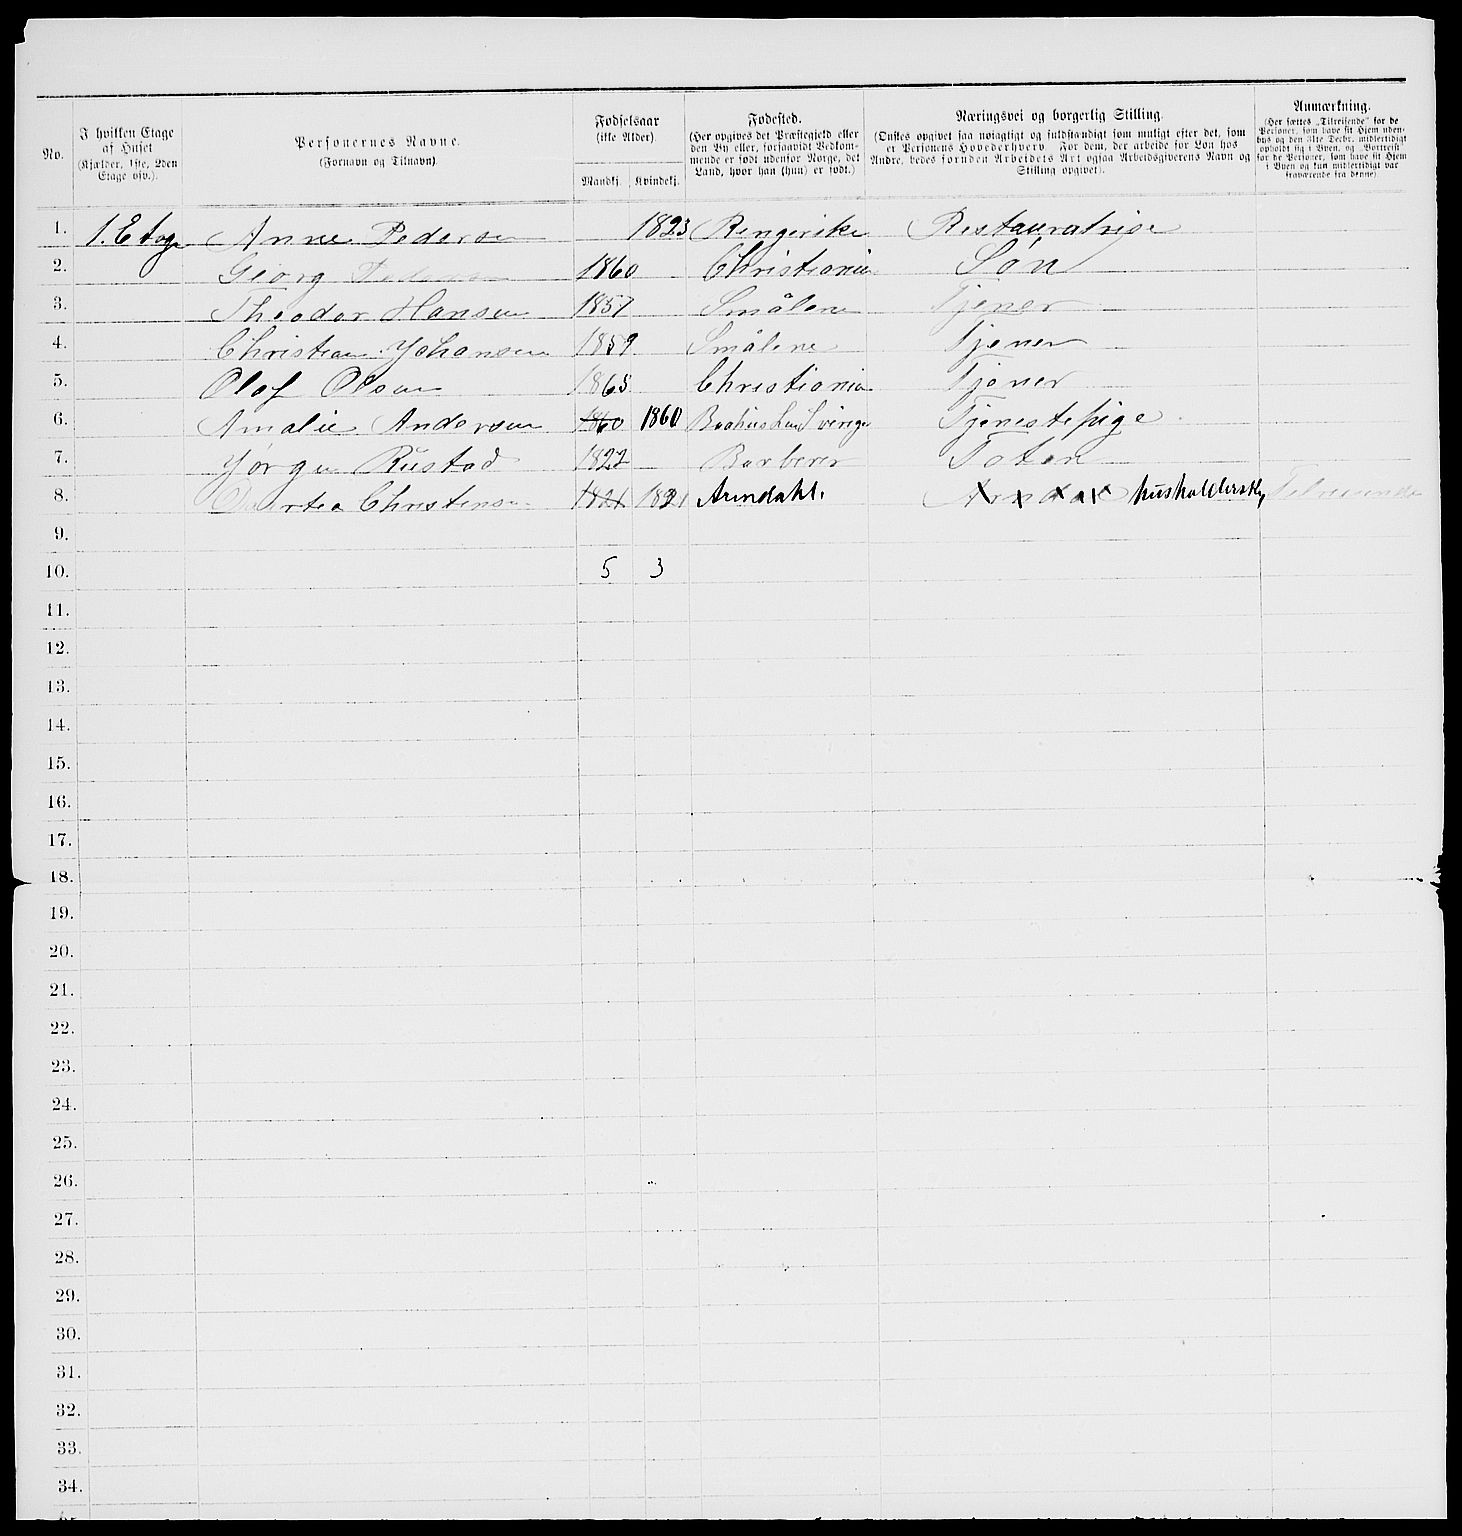 No.
I hvilken Etage af Huset (Kjælder, 1ste, 2den Etage osv.).
Personernes Navne. (Fornavn og Tilnavn).
Fødselsaar (ikke Alder). Mandkj. Kvindekj.
Fødested. (Her opgives det Præstegjeld eller den By eller, forsaavidt Vedkommende er født udenfor Norge, det Land, hvor han (hun) er født.)
Næringsvei og borgerlig Stilling. (Ønskes opgivet saa nøiagtigt og fuldstændigt som muligt efter det, som er Personens Hovederhverv. For dem, der arbeide for Løn hos Andre, bedes foruden Arbeidets Art ogsaa Arbeidsgiverens Navn og Stilling opgivet).
Anmærkning. (Her sættes „Tilreisende" for de Personer, som have sit Hjem udenbys og den 31te Decbr. midlertidigt opholdt sig i Byen, og „Bortreist" for de Personer, som have sit Hjem i Byen og kun midlertidigt var fraværende fra denne).
1. 1. Etage Anne Pedersen 1823 Ringerike Restauratrise
2. Georg Pedersen 1860 Christiania Søn
3. Theodor Hansen 1857 Smålene Tjener
4. Christian Johansen 1859 Smålene Tjener
5. Olof Olsen 1865 Christiania Tjener
6. Amalie Andersen 1860 1860 Tjenestepige
7. Jørgen Rustad 1822 Barberer Toten
8. Christensen 1821 1821 Arendahl. Arndal husholderske
9.
10. 5 3
11.
12.
13.
14.
15.
16.
17.
18.
19.
20.
21.
22.
23.
24.
25.
26.
27.
28.
29.
30.
31.
32.
33.
34.